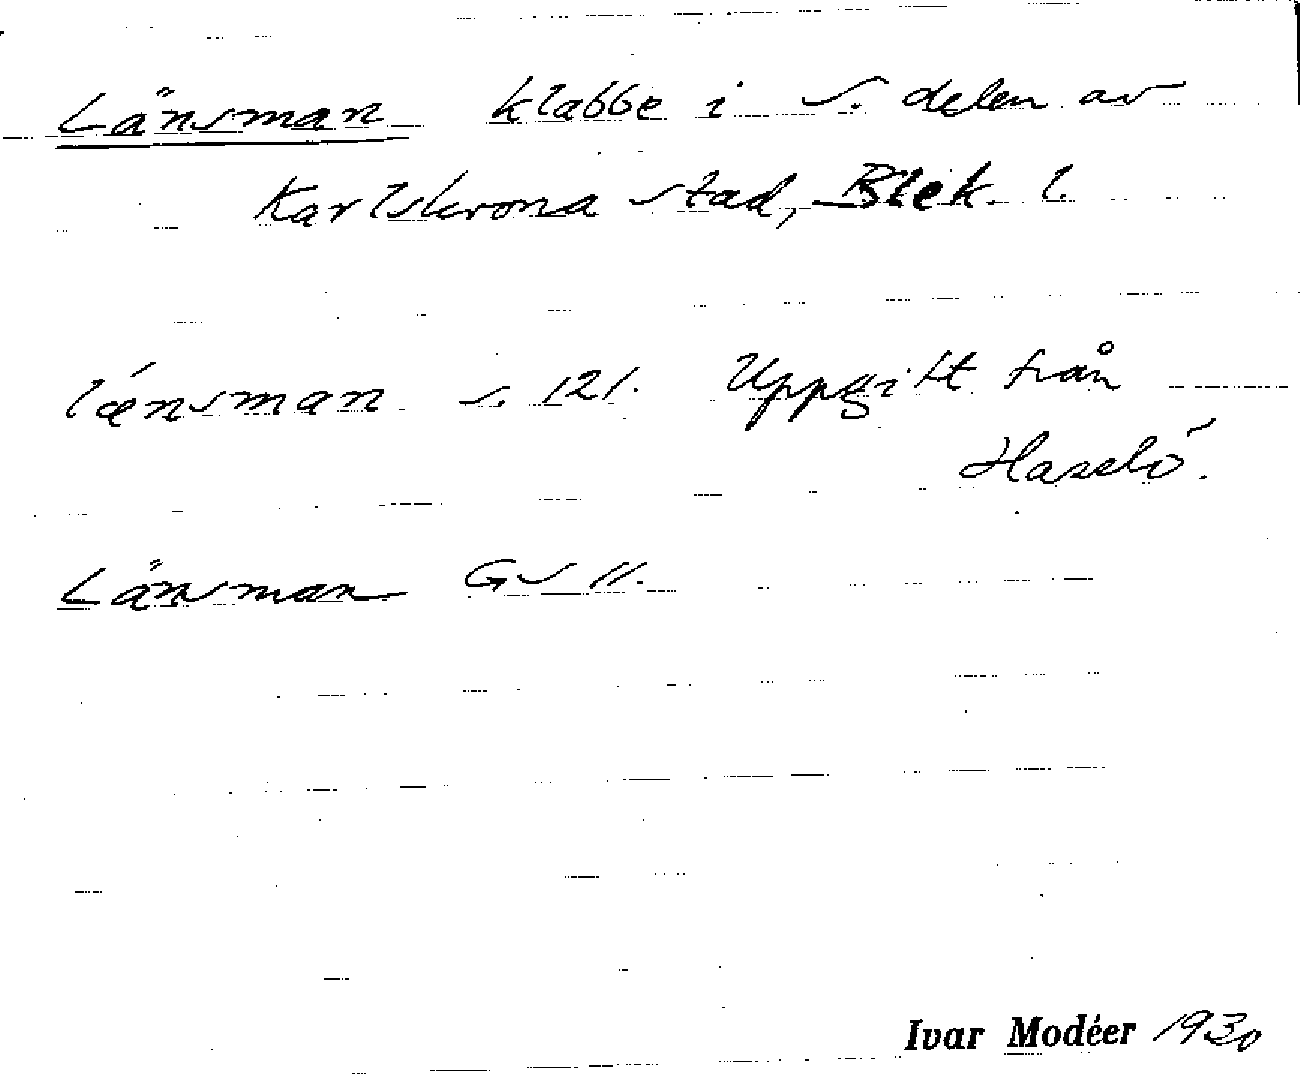 Länsman klabbe i s. delen av
Karlskrona stad, Blek. l.
lænsman s. 121. Uppgift från
Hasslö.
Länsman GS 11.
Ivar Modéer 1930